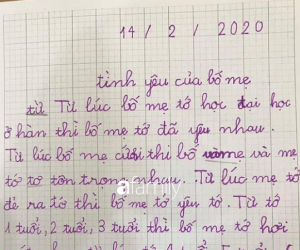 14 / 2 / 2020
tình yêu của bố mẹ
từ Từ lúc bố mẹ tớ học đại học
ở hàn thì bố mẹ tớ đã yêu nhau.
Từ lúc bố mẹ cưới thì bố và mẹ
tớ tôn trọng nhau. Từ lúc mẹ tớ
đẻ ra tớ thì bố mẹ tớ yêu tớ. Từ tớ
1 tuổi, 2 tuổi, 3 tuổi thì bố mẹ tớ hơi
afamily